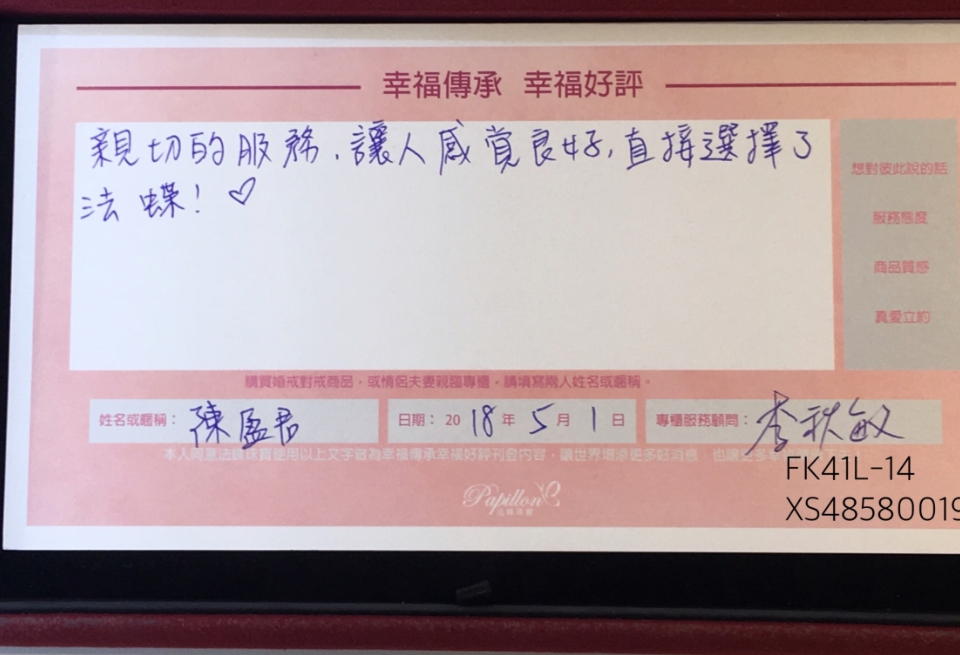 幸福傳承 幸福好評
親切的服務,讓人感覺良好,直接選擇了
法蝶!♡
想對彼此說的話
服務態度
商品質感
真愛立約
購買婚戒對戒商品,或情侶夫妻親臨專櫃,請填寫兩人姓名或暱稱。
姓名或暱稱: 陳盈君
日期: 2018年 5月 1日
專櫃服務顧問: 李秋敏
本人同意法蝶珠寶使用以上文字做為幸福傳承幸福好評刊登內容,讓世界增添更多好消息,也讓更多
FK41L-14
XS48580019
Papillon
法蝶珠寶